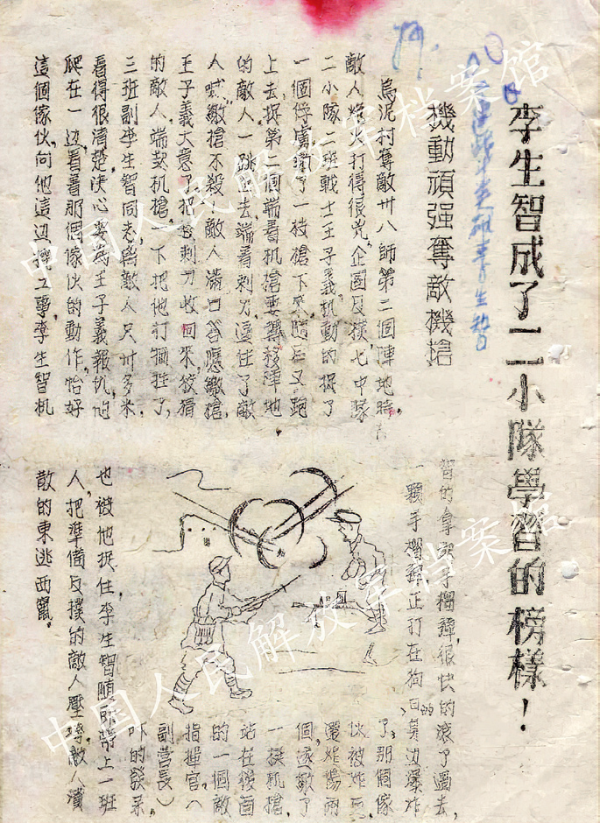 李生智成了二小隊學習的榜樣！
機動頑强奪敵機搶
烏泥村奪敵卅八師第二個陣地時，
敵人炮火打得很兇，企圖反扑，七中隊
二小隊二班戰士王子義机動的捉了
一個俘虜，繳了一枝搶下來，隨后又跑
上去捉第二個端着机搶要轉移陣地
的敵人一跳上去端着刺刀逼住了敵
人喊"繳搶不殺！"敵人滿口答應繳搶，
王子義大意了把刺刀收回來，狡猾
的敵人端起机搶一下把他打犧牲了，
三班副李生智同志离敵人只卅多米，
看得很清楚，决心要為王子義報仇，他
爬在一边，看着那個傢伙的動作，恰好
這個傢伙，向他這边挖工事，李生智机
智的拿出手榴彈，很快的滾了過去，
一顆手榴彈正打在狗日的身边爆炸
了，那個傢
伙被炸死，
還炸傷兩
個，逐敵了
一挺机搶，
站在後面
的一個敵
指揮官（
副營長）
吓的發呆，
也被他抓住，李生智随即帶上一班
人，把準備反撲的敵人壓垮，敵人潰
散的東逃西竄。
中国人民解放军档案馆
中国人民解放军档案馆